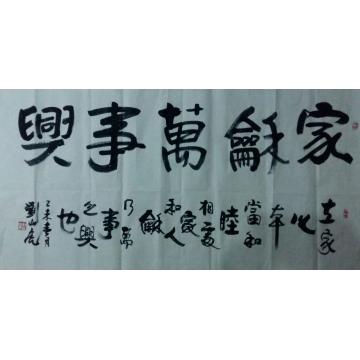 家龢萬事興
立家
之本
當和
睦
相愛
家人
和
龢
乃萬
事
之興
也
乙未春月
劉山虎